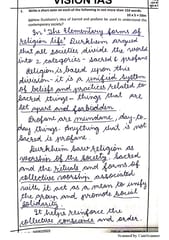 VISION IAS
Write a short note on each of the following in not more than 150 words.
10 x 5 = 50m
Durkheim's idea of Sacred and profane be used to understand the contemporary society?
In "The Elementary forms of
religion life" Durkheim argued
that all societies divide the world
into 2 categories - sacred & profane
Religion is based upon this
division - it is a unified system
of beliefs and practices related to
sacred things - things that are
set apart and forbidden
Profane are mundane, day-to
day things. Anything that is not
sacred is profane.
Durkheim saw religion as
worship of the society. Sacred
and the rituals and forms of
collective worship associated
with it act as a mean to unify
the group and promote social
solidarity.
It helps reinforce the
collective conscience and order.